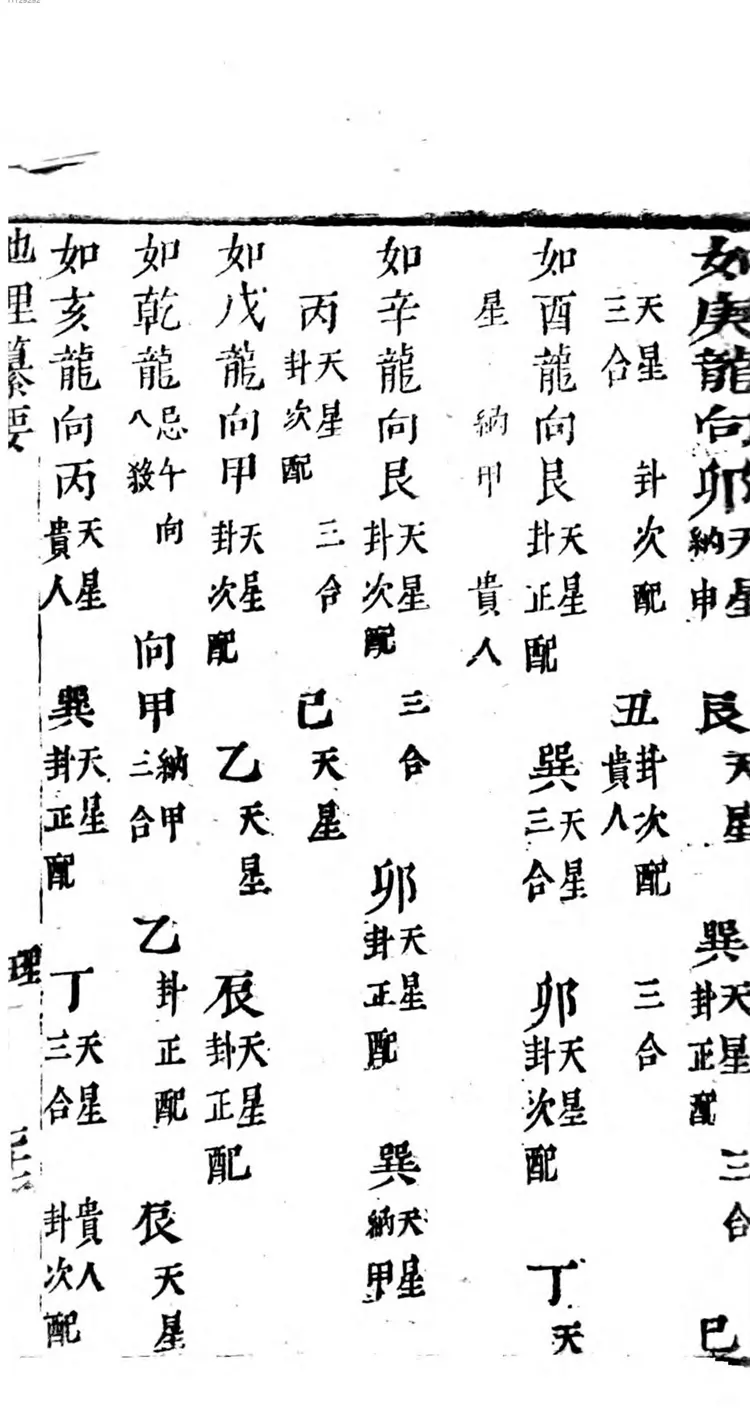 如庚龍向卯天星納甲 艮天星 巽天星卦正配 三合 巳
天星三合 卦次配 丑卦次配貴人 三合
如酉龍向艮天星卦正配 巽天星三合 卯天星卦次配 丁天
星 納甲 貴人
如辛龍向艮天星卦次配 三合 卯天星卦正配 巽天星納甲
丙天星卦次配 三合 巳天星
如戌龍向甲天星卦次配 乙天星 辰天星卦正配
如乾龍忌午向八殺 向甲納甲三合 乙卦正配 辰天星
如亥龍向丙天星貴人 巽天星卦正配 丁天星三合 貴人卦次配
地理纂要 理